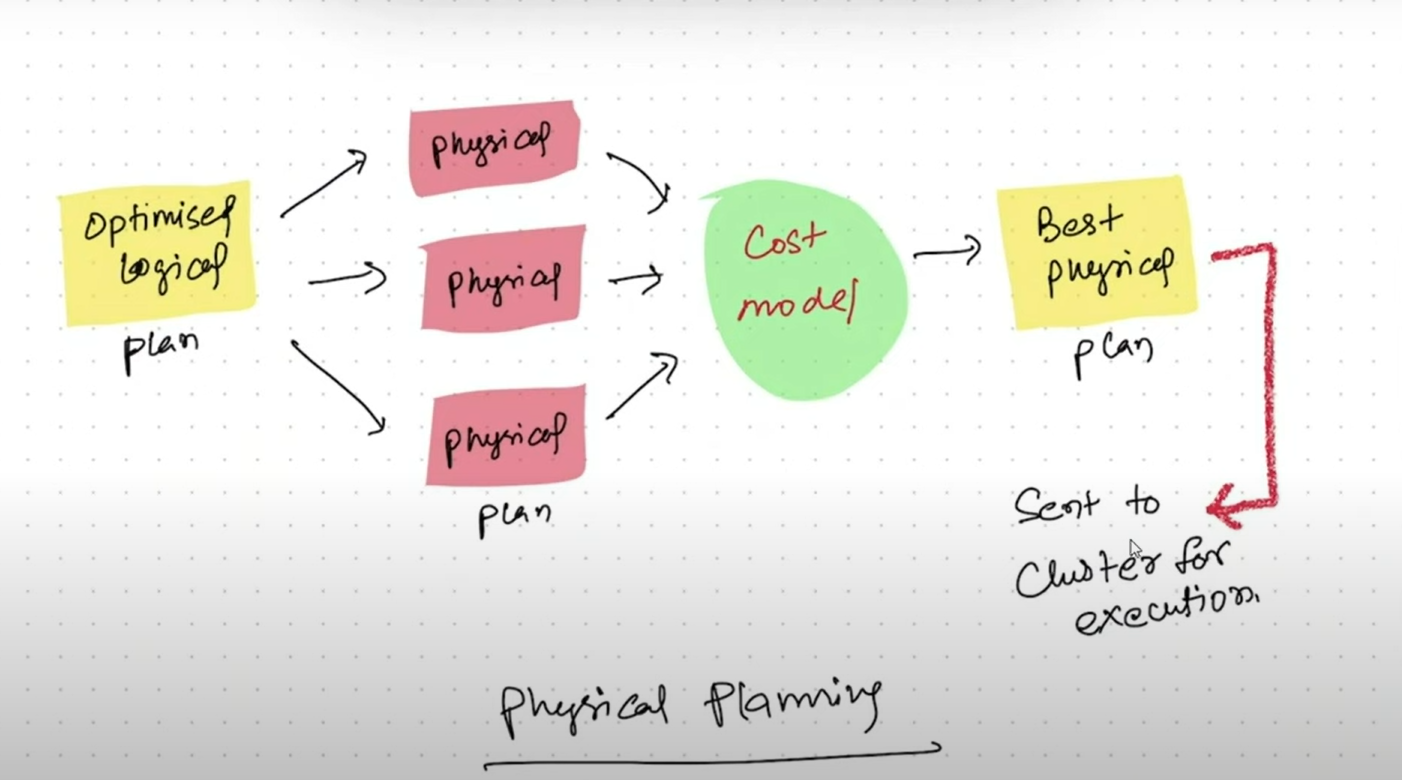 Optimised
Logical
plan
Physical
Physical
Physical
plan
Cost
model
Best
physical
plan
Sent to
Cluster for
execution.
Physical Planning